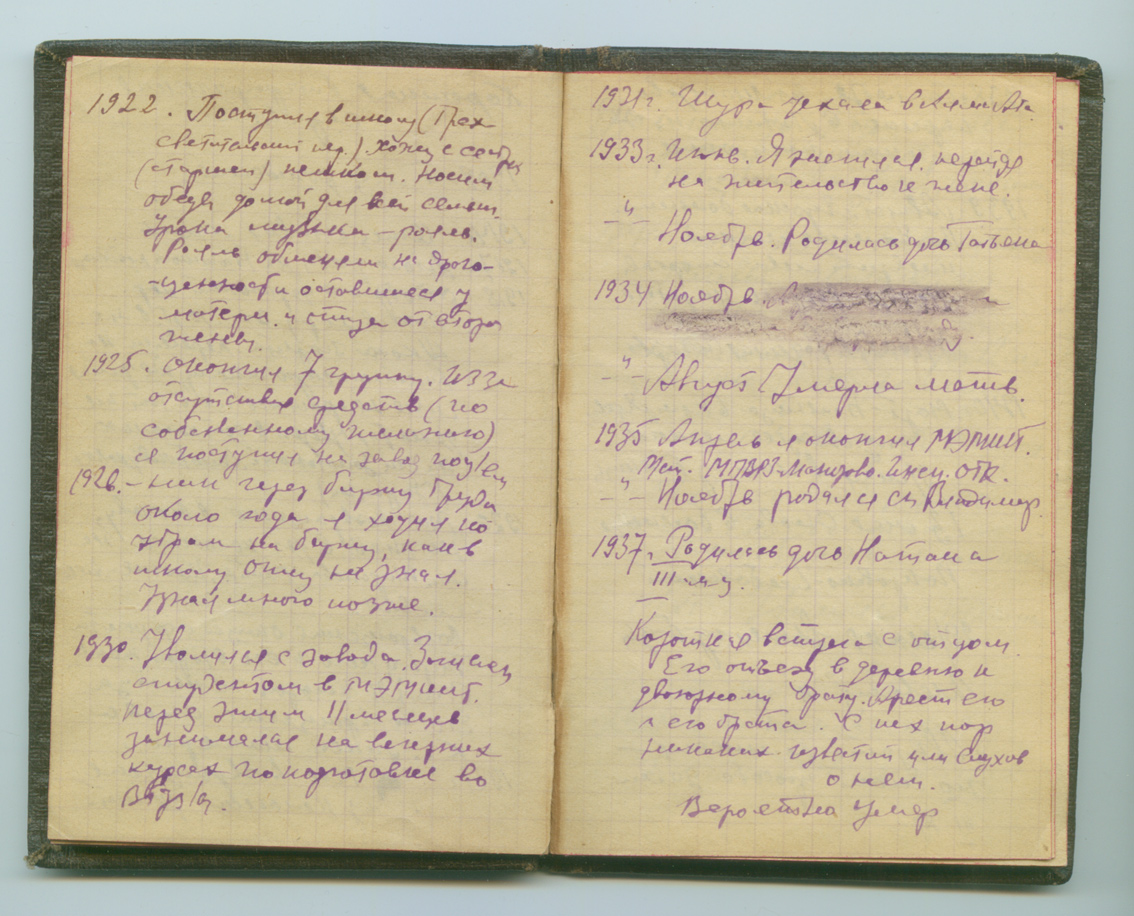 1922. Поступил в школу (Трех
светительский пер.). Хожу с сестрой
(старшей) пешком. Носим
обеды домой для всей семьи.
Уроки музыка – рояль.
Рояль обменяли на драго-
-ценности оставшиеся у
матери и отца от второй
жены.
1925. Окончил 7 группу. Из за
отсутствия средств (по
собственному желанию)
я поступил на завод
1926. – через биржу Труда
около года я ходил по
утрам на биржу, как в
школу Отец не знал.
Узнал много позже.
1930. Уволился с завода.
студентом в МЭМИИТ.
перед этим 11 месяцев
занимался на вечерних
курсах по подготовке во
ВУЗ/ы.
1931 г. Шура уехала в Алма Ата.
1933 г. Янв. Я женился. перейдя
на жительство к жене.
–"– Ноябрь. Родилась дочь Татьяна
1934 Ноябрь.
–"– Август Умерла мать.
1935 Апрель я окончил МЭМИИТ.
" Май. МПВРЗ Инж. ОТК.
–"– Ноябрь родился сын Владимир.
1937 г. Родилась дочь Наташа
III
Короткая встреча с отцом.
Его отъезд в деревню к
двоюродному брату. Арест его
и его брата. С тех пор
никаких известий или слухов
о нем.
Вероятно умер